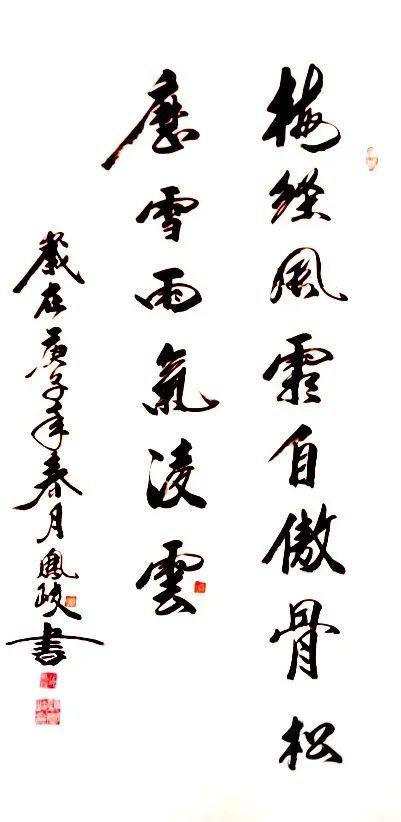 梅经風霜自傲骨松
歷雪雨氣凌雲
歲在庚子年春月鳳岐書